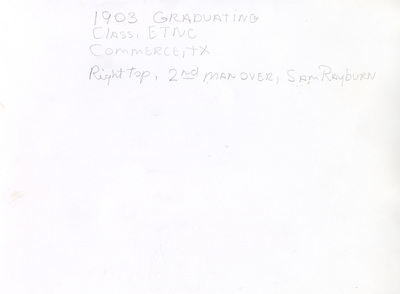 1903 GRADUATING
Class, ETNC
COMMERCE, TX
Right Top, 2nd MAN OVER, SAM RAYBURN